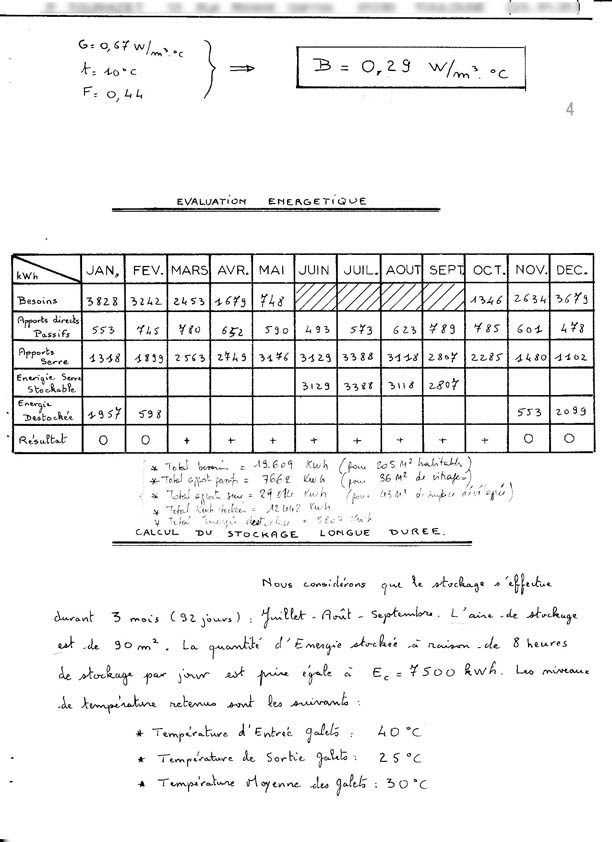 G = 0,67 W/m³.°C
t = 10°C
F = 0,44
⟹ B = 0,29 W/m³.°C
4
EVALUATION ENERGETIQUE
kWh JAN. FEV. MARS AVR. MAI JUIN JUIL. AOUT SEPT. OCT. NOV. DEC.
Besoins 3828 3242 2453 1679 748 1346 2634 3679
Apports directs Passifs 553 745 780 652 590 493 573 623 789 785 601 478
Apports Serre 1318 1899 2563 2749 3176 3129 3388 3118 2807 2285 1480 1102
Energie Serre Stockable 3129 3388 3118 2807
Energie Destockée 1957 598 553 2099
Résultat O O + + + + + + + + O O
* Total besoin = 19.609 Kwh (pour 205 M² habitable)
* Total apport passif = 7662 Kwh (pour 36 M² de vitrages)
* Total apport serre = 29014 Kwh (pour 43 M² de développée)
* Total Kwh stockés = 12442 Kwh
* Total Energie destockée = 5207 Kwh
CALCUL DU STOCKAGE LONGUE DUREE.
Nous considérons que le stockage s'effectue
durant 3 mois (92 jours) : Juillet - Août - Septembre. L'aire de stockage
est de 90 m². La quantité d'Energie stockée à raison de 8 heures
de stockage par jour est prise égale à Ec = 7500 kWh. Les niveaux
de température retenus sont les suivants :
* Température d'Entrée galets : 40°C
* Température de Sortie galets : 25°C
* Température Moyenne des galets : 30°C